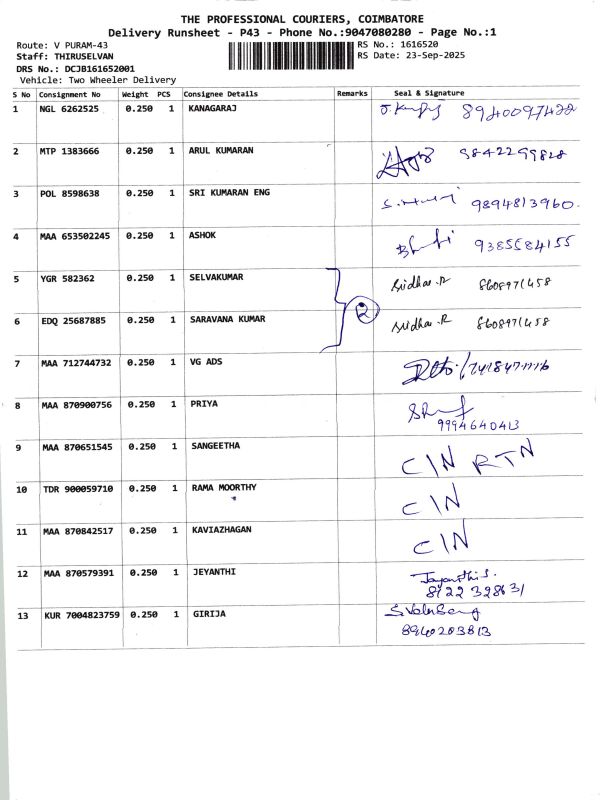 THE PROFESSIONAL COURIERS, COIMBATORE
Delivery Runsheet - P43 - Phone No.:9047080280 - Page No.:1
Route: V PURAM-43 RS No.: 1616520
Staff: THIRUSELVAN RS Date: 23-Sep-2025
DRS No.: DCJB161652001
Vehicle: Two Wheeler Delivery
S No Consignment No Weight PCS Consignee Details Remarks Seal & Signature
1 NGL 6262525 0.250 1 KANAGARAJ 8940097422
2 MTP 1383666 0.250 1 ARUL KUMARAN 9842299828
3 POL 8598638 0.250 1 SRI KUMARAN ENG 9894813960.
4 MAA 653502245 0.250 1 ASHOK 9385584155
5 YGR 582362 0.250 1 SELVAKUMAR Sridhar.R 8608971458
2
6 EDQ 25687885 0.250 1 SARAVANA KUMAR Sridhar.R 8608971458
7 MAA 712744732 0.250 1 VG ADS
8 MAA 870900756 0.250 1 PRIYA
9994640413
9 MAA 870651545 0.250 1 SANGEETHA C/N RTN
10 TDR 900059710 0.250 1 RAMA MOORTHY C/N
11 MAA 870842517 0.250 1 KAVIAZHAGAN C/N
12 MAA 870579391 0.250 1 JEYANTHI Jayanthi.S.
8122328631
13 KUR 7004823759 0.250 1 GIRIJA
8940203813